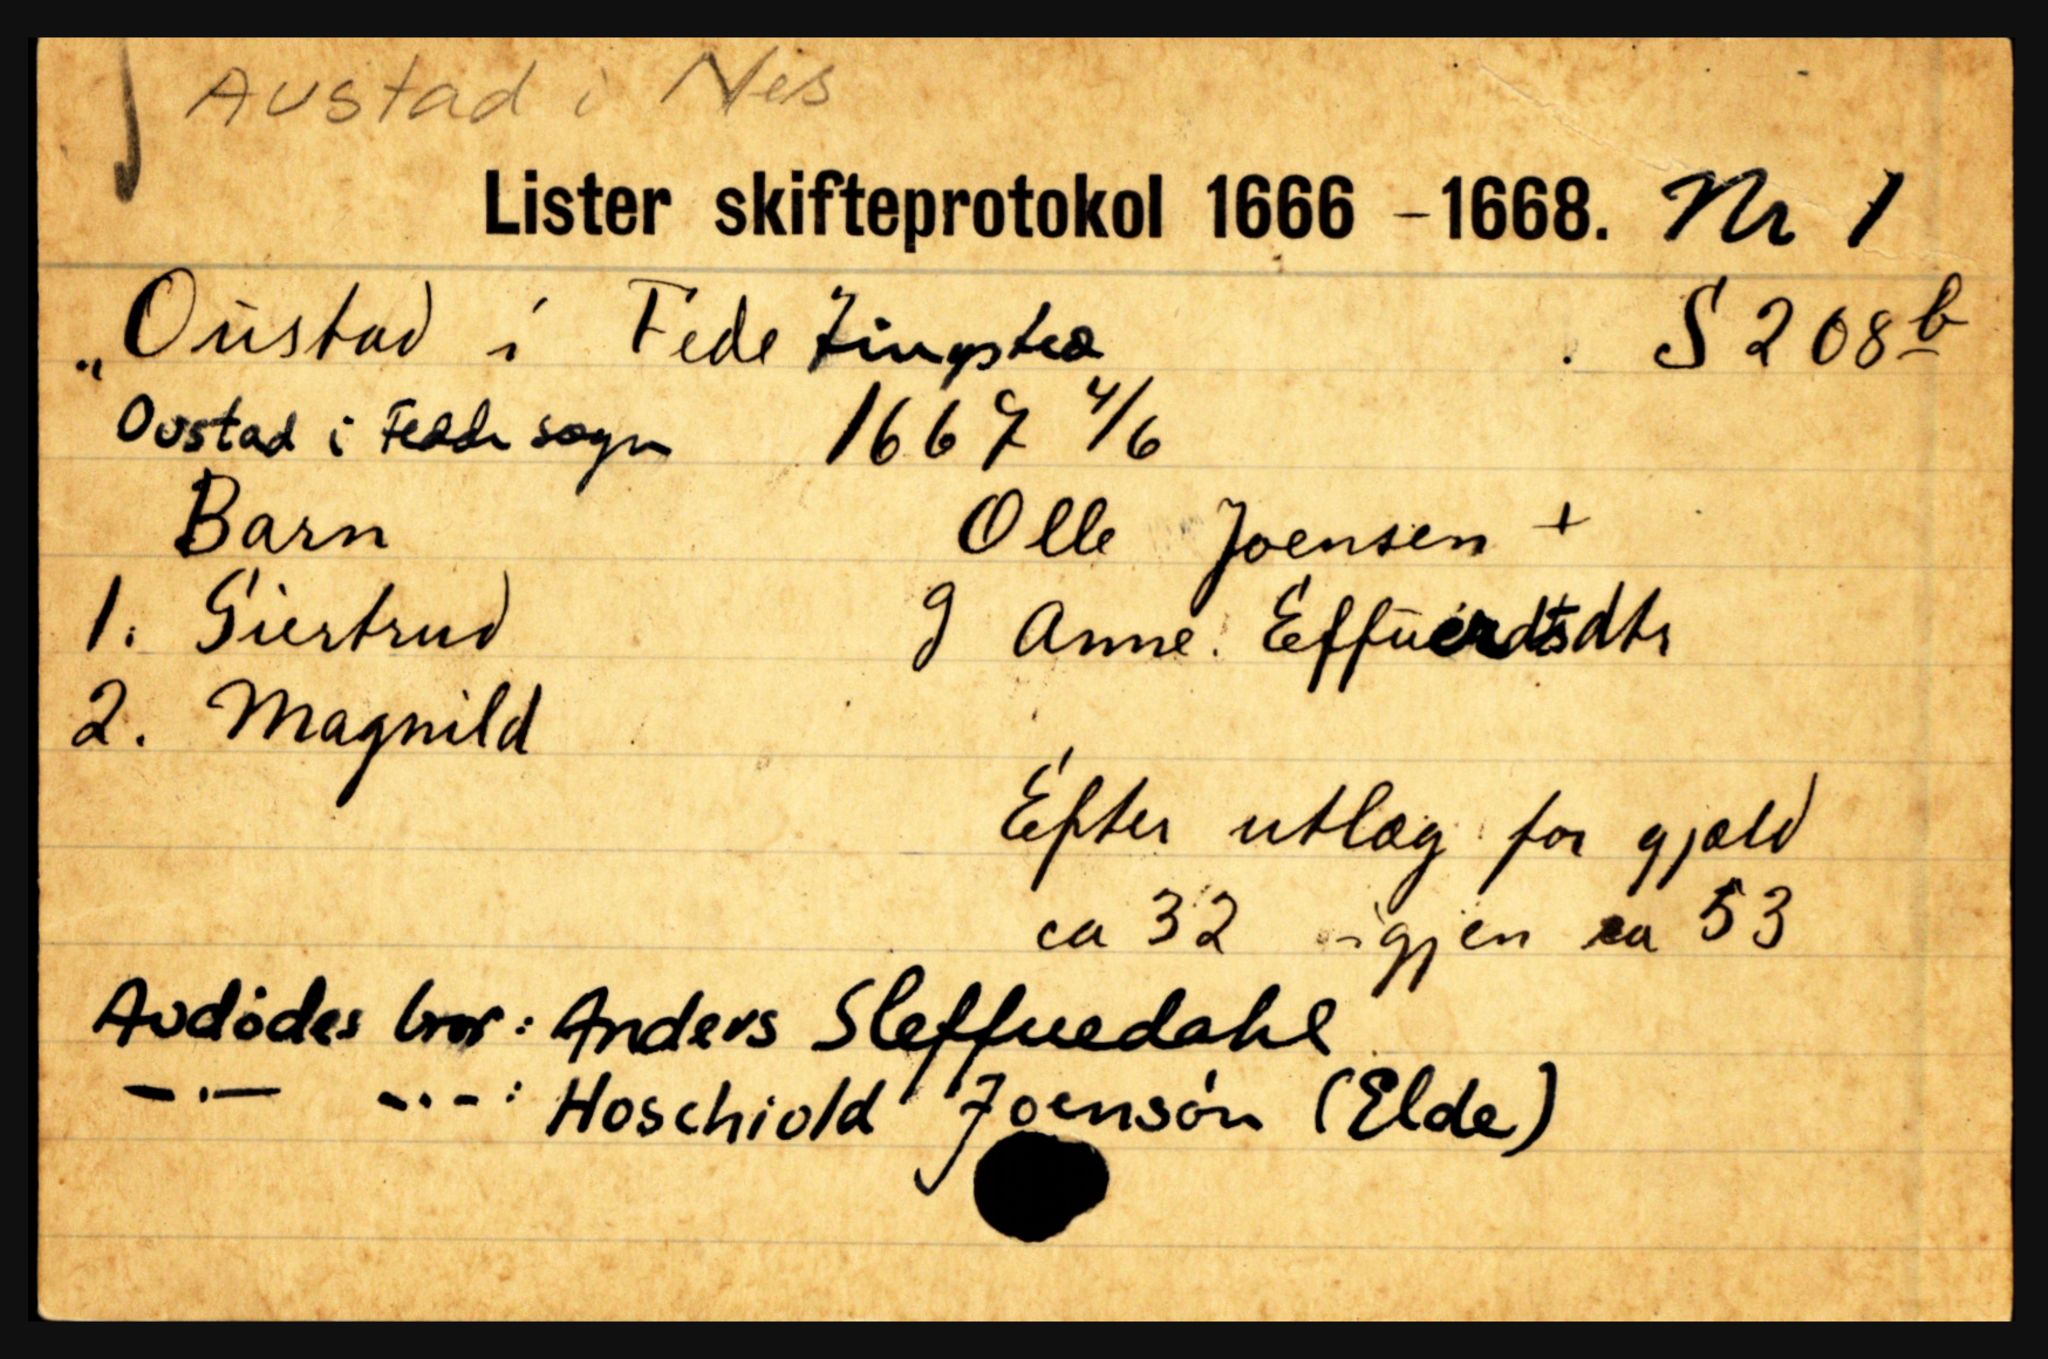 Austad i Nes
Lister skifteprotokol 1666 - 1668. Nr 1
„Oŭstad i Fede tingsted S 208 b
Ovstad i Fedde sogn 1667 4/6
Barn Olle Joensen +
1. Giertrud g Anne Effŭerdtsdtr
2. Magnild
Efter utlæg for gjæld
ca 32 igjen ca 53
Avdødes bror: Anders Sleffuedahl
— . — - . - : Hoschiold Joensøn (Elde)